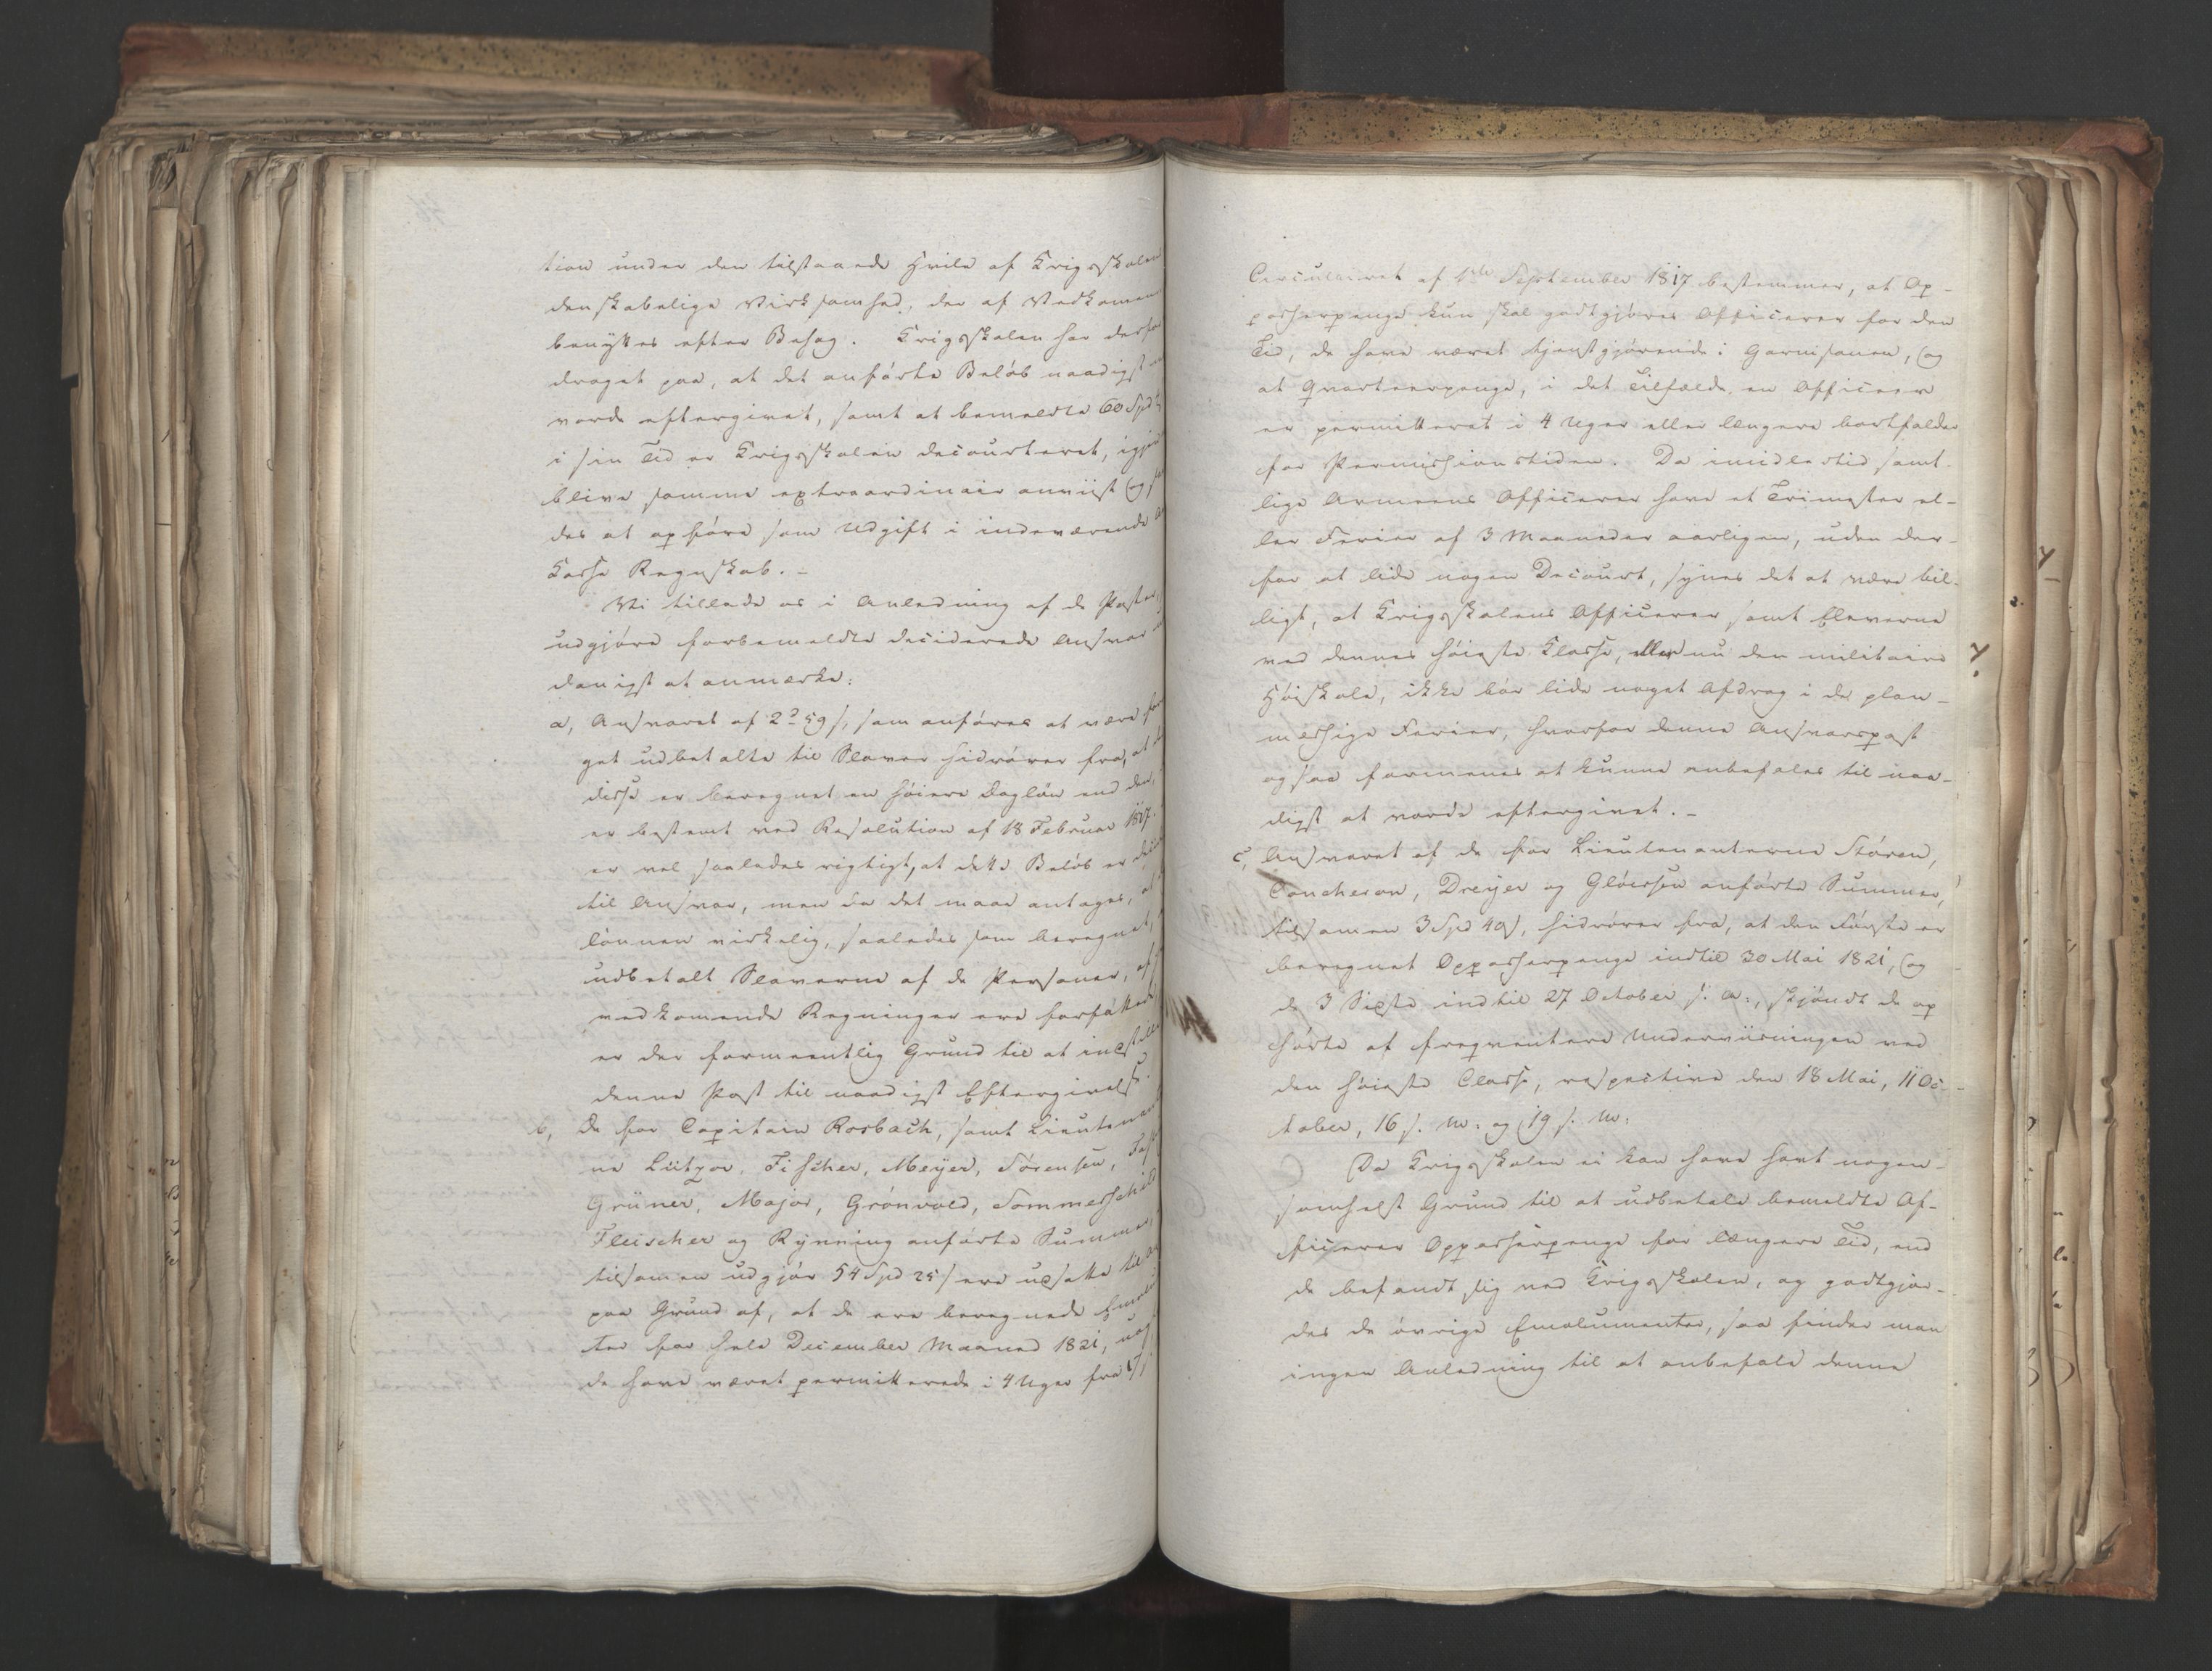 tion under den tilstaaede Hvile af Krigsskolen
denskabelige Virksomhed, der af Vedkomen
benyttes efter Behag. Krigsskolen har derfor
draget paa, at det anførte Beløb naadigst
vorde eftergivet, samt at bemeldte 60 Spd
i sin Tid er Krigsskolen decourteret, igjen
blive samme extraordinair anviist og
des at opføre som Udgift i indeværende
Kasse Regnskab. –
Vi tillade os i Anledning af de Poster,
udgjøre forbemeldte deciderede Ansvar
danigst at anmærke:
a, Ansvaret af 2 59 s, som anføres at være for
get udbetalte til Slaver hidrører fra, at
disse er beregnet en høiere Dagløn end den,
er bestemt ved Resolution af 18 Februar 1817.
er vel saaledes rigtigt, at dette Beløb er
til Ansvar, men da det maae antages, at
lønnen virkelig, saaledes som beregnet,
udbetalt Slaverne af de Personer, af
vedkomende Regninger ere forfattede
er der formeentlig Grund til at indstille
denne Post til naadigst Eftergivelse.
b, De for Capitain Rosbach, samt Lieutenant
ne Lützow, Fischer, Meyer, Sørensen,
Grüner, Major, Grönvold, Sommerschild
Fleischer og Rynning anførte Summer,
tilsamen udgjør 54 Spd 25 s ere udsatte til
paa Grund af, at de ere beregnede
ter for hele December Maaned 1821,
de have været permitterede i 4 Uger fra
Circulairet af 1ste September 1817 bestemmer, at Op-
passerpenge kun skal godtgjøres Officerer for den
Tid, de have været tjenstgjørende i Garnisonen, og
at Qvarteerpenge, i det Tilfælde en Officeer
er permitteret i 4 Uger eller længere bortfalder
for Permissionstiden. Da imidlertid samt-
lige Armeens Officerer have et Trimester el-
ler Ferier af 3 Maaneder aarligen, uden der-
for at lide nogen Decourt, synes det at være bil-
ligt, at Krigsskolens Officerer samt Eleverne
ved dennes høieste Klasse, eller nu den militaire
Høiskole, ikke bør lide noget Afdrag i de plan-
mæssige Ferier, hvorfor denne Ansvarspost
ogsaa formenes at kunne anbefales til naa-
digst at vorde eftergivet. –
c, Ansvaret af de for Lieutenanterne Støren,
Coucheron, Dreyer og Gløersen anførte Summer,
tilsamen 3 Spd 40 s, hidrører fra, at den Første er
beregnet Oppasserpenge indtil 30 Mai 1821, og
de 3 Sidste indtil 27 October s. a., skjøndt de op
hørte at freqventere Underviisningen ved
den høieste Classe, respective den 18 Mai, 11 Oc-
tober, 16 s. M. og 19 s. M.
Da Krigsskolen ei kan have havt nogen-
somhelst Grund til at udbetale bemeldte Of-
ficerer Oppasserpenge for længere Tid, end
de befandt sig ved Krigsskolen, og godtgjor-
des de øvrige Emolumenter, saa finder man
ingen Anledning til at anbefale denne